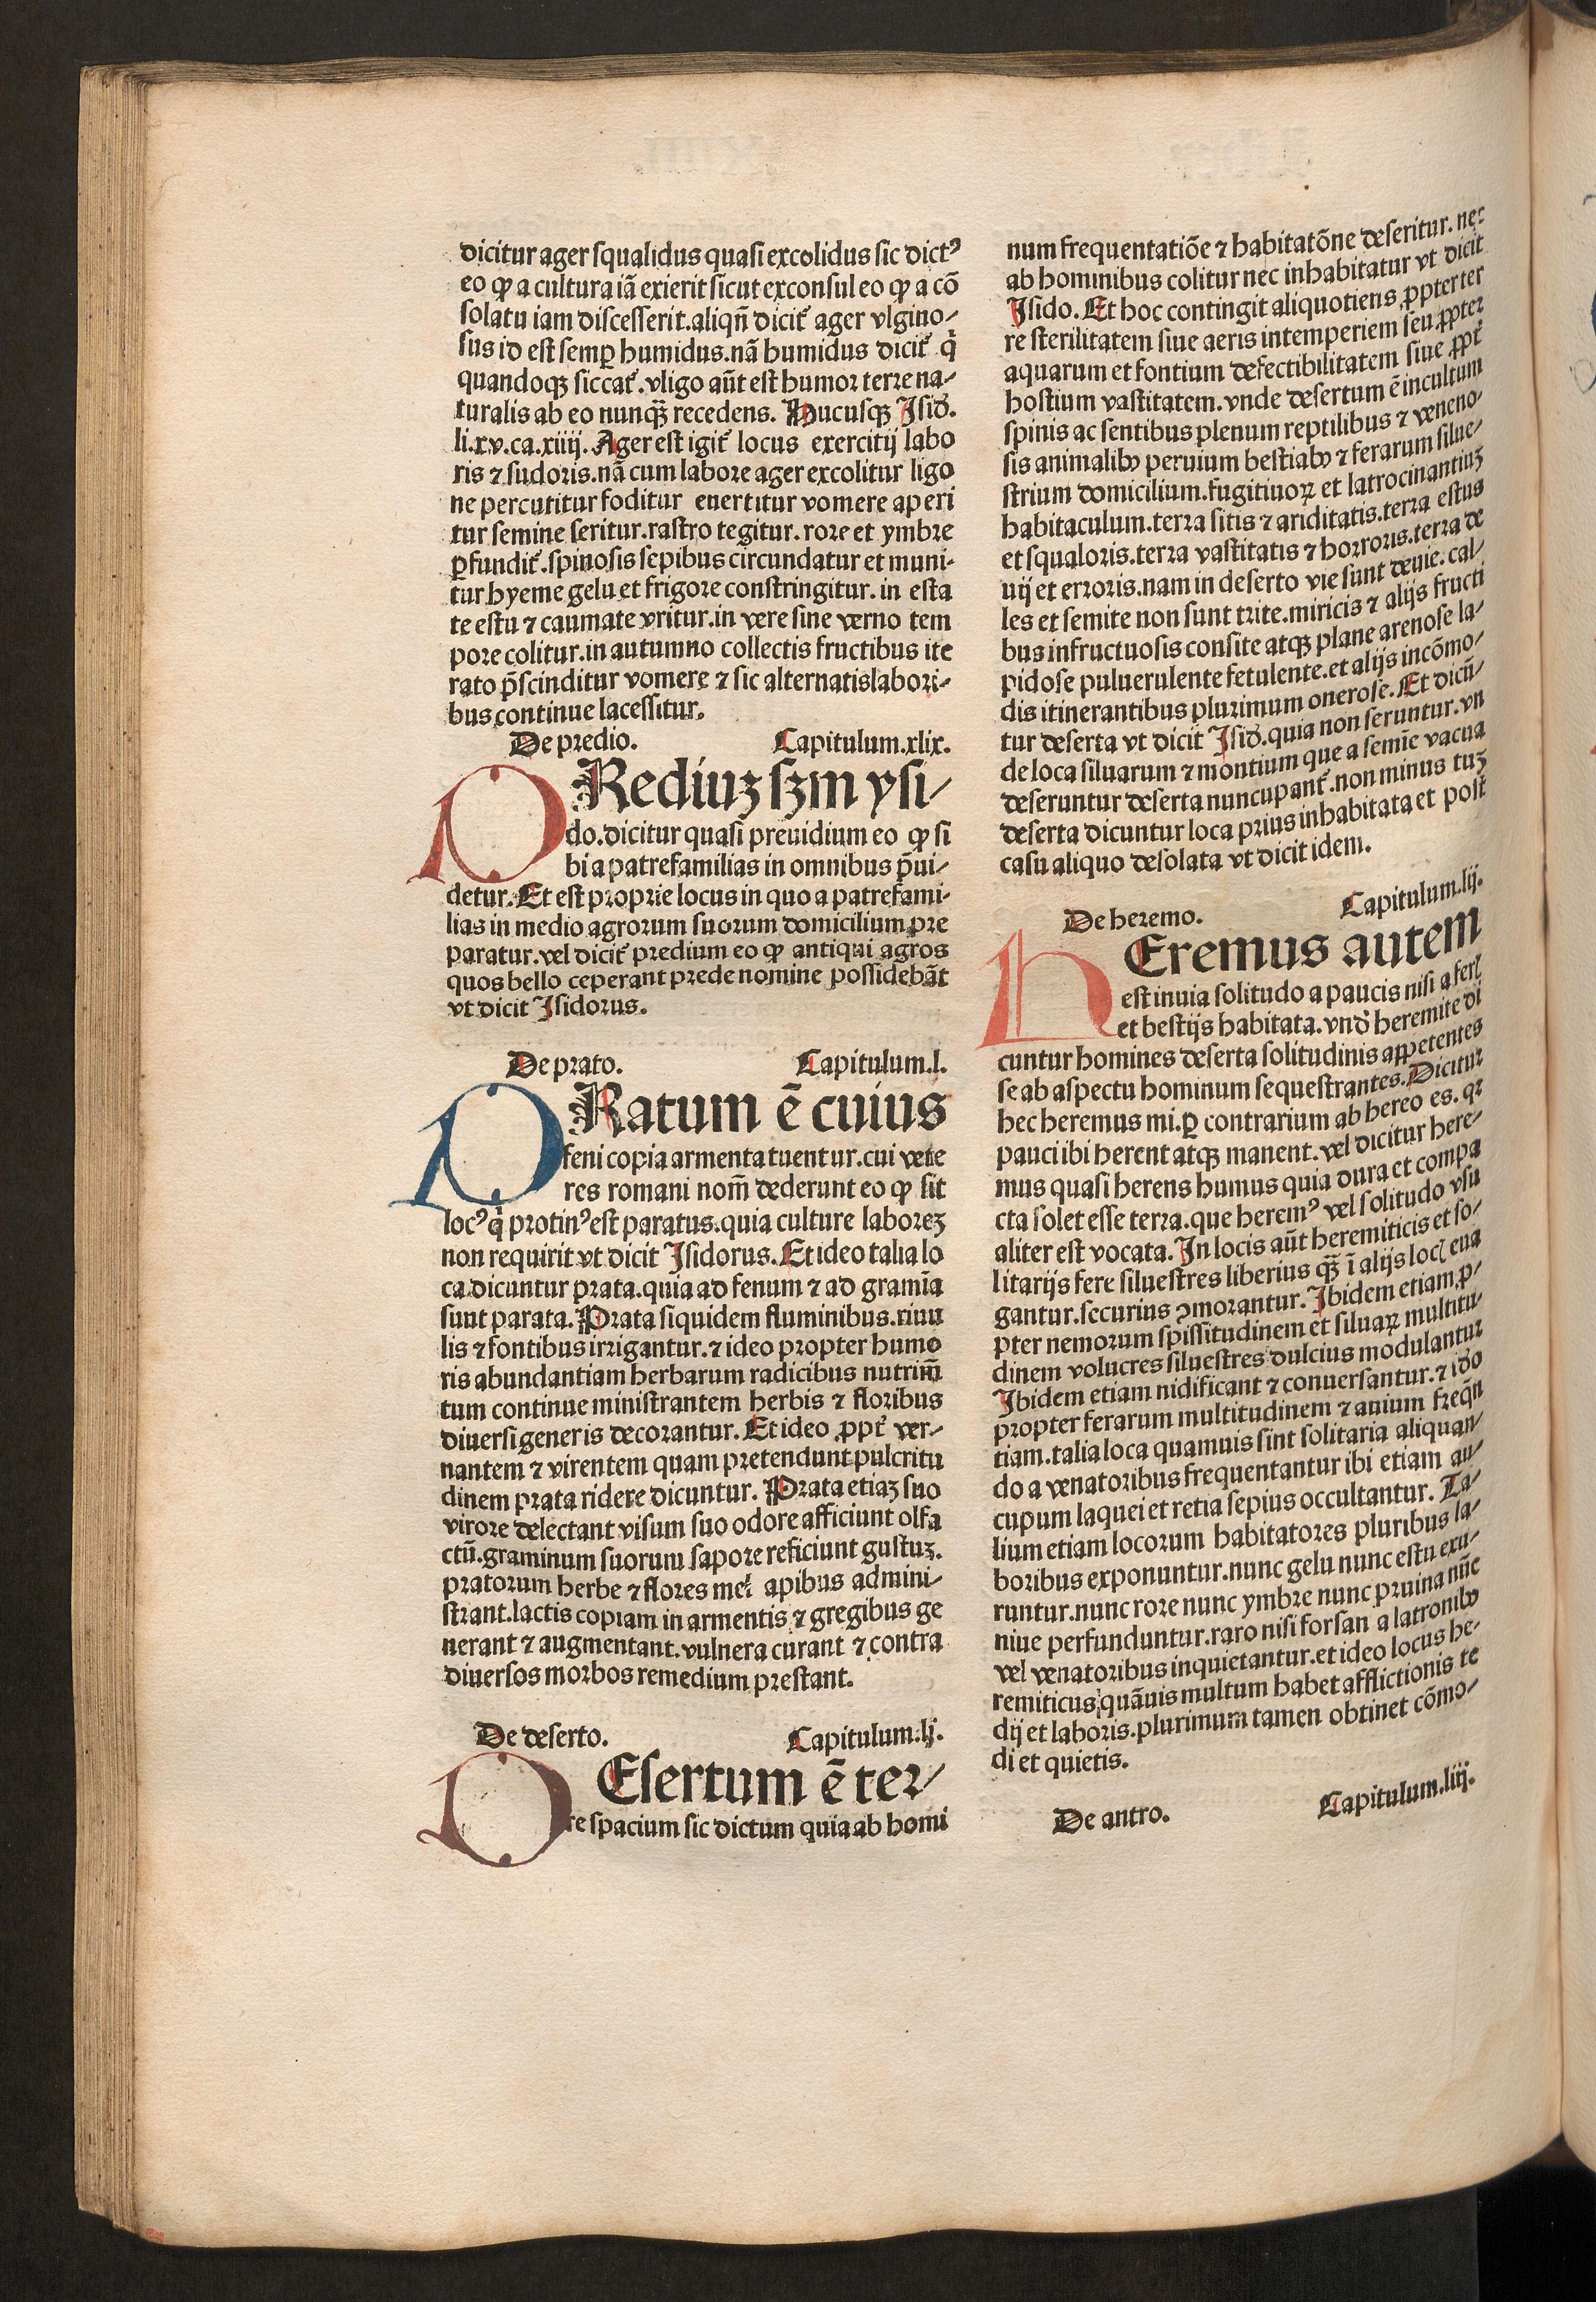 dicitur ager squalidus quasi excolidus sic dictꝰ
eo ꝙ a cultura iā exierit sicut exconsul eo ꝙ a cō
solatu iam discesserit.aliqñ dicit᷑ ager vlgino/
sus id est semꝑ humidus.nā humidus dicit᷑ q̇
quandoqꝫ siccat᷑.vligo aūt est humor terre na/
turalis ab eo nunqꝫ̄ recedens. Hucusqꝫ Isid̛.
li.xv.ca.xiiij. Ager est igit᷑ locus exercitij labo
ris ⁊ sudoris.nā cum labore ager excolitur ligo
ne percutitur foditur euertitur vomere aperi
tur semine seritur.rastro tegitur.rore et ymbre
ꝑfundit᷑.spinosis sepibus circundatur et muni-
tur hyeme gelu et frigore constringitur.in esta
te estu ⁊ caumate vritur.in vere sine verno tem
pore colitur.in autumno collectis fructibus ite
rato p̄scinditur vomere ⁊ sic alternatislabori-
bus continue lacessitur.
De predio. Capitulum.xlix.
PRediuꝫ sꝫm ysi/
do.dicitur quasi preuidium eo ꝙ si
bi a patrefamilias in omnibus p̄ui/
detur. Et est proprie locus in quo a patrefami-
lias in medio agrorum suorum domicilium pre
paratur.vel dicit᷑ predium eo ꝙ antiqui agros
quos bello ceperant prede nomine possidebāt
vt dicit Isidorus.
De prato. Capitulum.l.
PRatum ē cuius
feni copia armenta tuentur.cui vete
res romani nom̄ dederunt eo ꝙ sit
locꝰ q̇ protinꝰ est paratus.quia culture laboreꝫ
non requirit vt dicit Isidorus. Et ideo talia lo
ca dicuntur prata.quia ad fenum ⁊ ad gramīa
sunt parata. Prata siquidem fluminibus.riuu
lis ⁊ fontibus irrigantur.⁊ ideo propter humo
ris abundantiam herbarum radicibus nutrim̄
tum continue ministrantem herbis ⁊ floribus
diuersi generis decorantur. Et ideo ꝓpt᷑ ver/
nantem ⁊ virentem quam pretendunt pulcritu
dinem prata ridere dicuntur. Prata etiaꝫ suo
virore delectant visum suo odore afficiunt olfa
ctū.graminum suorum sapore reficiunt gustuꝫ.
pratorum herbe ⁊ flores mel̛ apibus admini/
strant.lactis copiam in armentis ⁊ gregibus ge
nerant ⁊ augmentant.vulnera curant ⁊ contra
diuersos morbos remedium prestant.
De deserto. Capitulum.lj.
DEsertum ē ter/
re spacium sic dictum quia ab homi
num frequentatiōe ⁊ habitatōne deseritur.nec
ab hominibus colitur nec inhabitatur vt dicit
Isido. Et hoc contingit aliquotiens ꝓpterter
re sterilitatem siue aeris intemperiem seu ꝓpter
aquarum et fontium defectibilitatem siue ꝓpt᷑
hostium vastitatem.vnde desertum ē incultum
spinis ac sentibus plenum reptilibus ⁊ veneno/
sis animalibꝰ peruium bestiabꝰ ⁊ ferarum silue/
strium domicilium.fugitiuoꝝ et latrocinantiuꝫ
habitaculum.terra sitis ⁊ ariditatis.terra estus
et squaloris.terra vastitatis ⁊ horroris.terra de
uij et erroris.nam in deserto vie sunt deuie.cal/
les et semite non sunt trite.miricis ⁊ alijs fructi
bus infructuosis consite atqꝫ plane arenose la/
pidose puluerulente fetulente.et alijs incōmo/
dis itinerantibus plurimum onerose. Et dicū/
tur deserta vt dicit Isid̛.quia non seruntur.vn
de loca siluarum ⁊ montium que a semīe vacua
deseruntur deserta nuncupant᷑.non minus tuꝫ
deserta dicuntur loca prius inhabitata et post
casu aliquo desolata vt dicit idem.
De heremo. Capitulum.lij.
hEremus autem
est inuia solitudo a paucis nisi a ferꝭ
et bestijs habitata.vnd̛ heremite di
cuntur homines deserta solitudinis appetentes
se ab aspectu hominum sequestrantes. Dicitur
hec heremus mi.ꝑ contrarium ab hereo es.qꝛ
pauci ibi herent atqꝫ manent.vel dicitur here/
mus quasi herens humus quia dura et compa
cta solet esse terra.que heremꝰ vel solitudo vsu
aliter est vocata. In locis aūt heremiticis et so/
litarijs fere siluestres liberius qꝫ̄ ī alijs locꝭ eua
gantur.securius ꝯmorantur. Ibidem etiam ꝓ/
pter nemorum spissitudinem et siluaꝝ multitu/
dinem volucres siluestres dulcius modulantur
Ibidem etiam nidificant ⁊ conuersantur.⁊ iđo
propter ferarum multitudinem ⁊ auium freqn̄
tiam.talia loca quamuis sint solitaria aliquan/
do a venatoribus frequentantur ibi etiam au/
cupum laquei et retia sepius occultantur. Ta/
lium etiam locorum habitatores pluribus la/
boribus exponuntur.nunc gelu nunc estu exu/
runtur.nunc rore nunc ymbre nunc pruina nūc
niue perfunduntur.raro nisi forsan a latronibꝰ
vel venatoribus inquietantur.et ideo locus he/
remiticus quāuis multum habet afflictionis te
dij et laboris.plurimum tamen obtinet cōmo/
di et quietis.
De antro. Capitulum.liij.